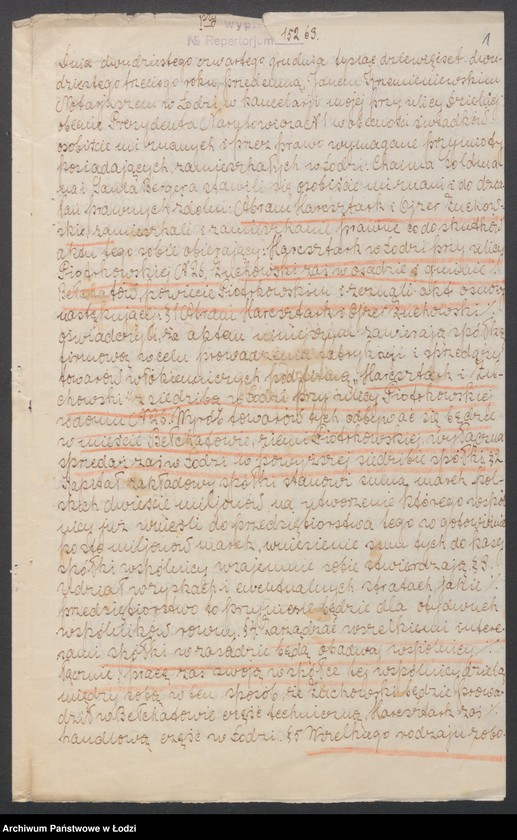 wypis
№ Repertorjum 152 63.
1
Dnia dwudziestego czwartego grudnia tysiąc dziewięćset dwu-
dziestego trzeciego roku, przedemną, Janem Krzemieniewskim
Notarjuszem w Łodzi, w kancelarji mojej przy ulicy Dzielnej
obecnie Prezydenta Narutowicza № 1 w obecności świadków
osobiście mi znanych i przez prawo wymagane przymioty
posiadających, zamieszkałych w Łodzi: Chaima
i Saula Bergera stawili się osobiście mi znani i do dzia-
łań prawnych zdolni: Abram Harcsztark i Ojzer Żuchow-
ski, zamieszkali i zamieszkanie prawne co do skutków
aktu tego sobie obierający: Harcsztark w Łodzi przy ulicy
Piotrkowskiej № 26, Żuchowski zaś w osadzie i gminie
Bełchatów, powiecie Piotrkowskim i zeznali akt osnowy
następującej: §1 Abram Harcsztark i Ojzer Żuchowski
oświadczyli, że aktem niniejszym zawierają spółkę
firmową w celu prowadzenia fabrykacji i sprzedaży
towarów włókienniczych pod firmą „Harcsztark i Żu-
chowski" z siedzibą w Łodzi przy ulicy Piotrkowskiej
w domu № 26. Wyrób towarów tych odbywać się będzie
w mieście Bełchatowie, ziemi Piotrkowskiej, wyłączna
sprzedaż zaś w Łodzi w powyższej siedzibie spółki §2
Kapitał zakładowy spółki stanowi sumą marek pol-
skich dwieście miljonów na utworzenie którego wspól-
nicy już wnieśli do przedsiębiorstwa tego w gotowiźnie
po sto miljonów marek, wniesienie sum tych do kasy
spółki wspólnicy wzajemnie sobie stwierdzają §3.
Udział w zyskach i ewentualnych stratach jakie
przedsiębiorstwo to przyniesie będzie dla obydwuch
wspólników równy. §4 Zarządzać wszelkiemi intere-
sami spółki w zasadzie będą obadwaj wspólnicy
łącznie, pracę zaś swoją w spółce tej wspólnicy dzielą
między sobą w ten sposób, że Żuchowski będzie prowa-
dził w Bełchatowie część techniczną, Harcsztark zaś
handlową część w Łodzi. §5 Wszelkiego rodzaju zobo-
Archiwum Państwowe w Łodzi